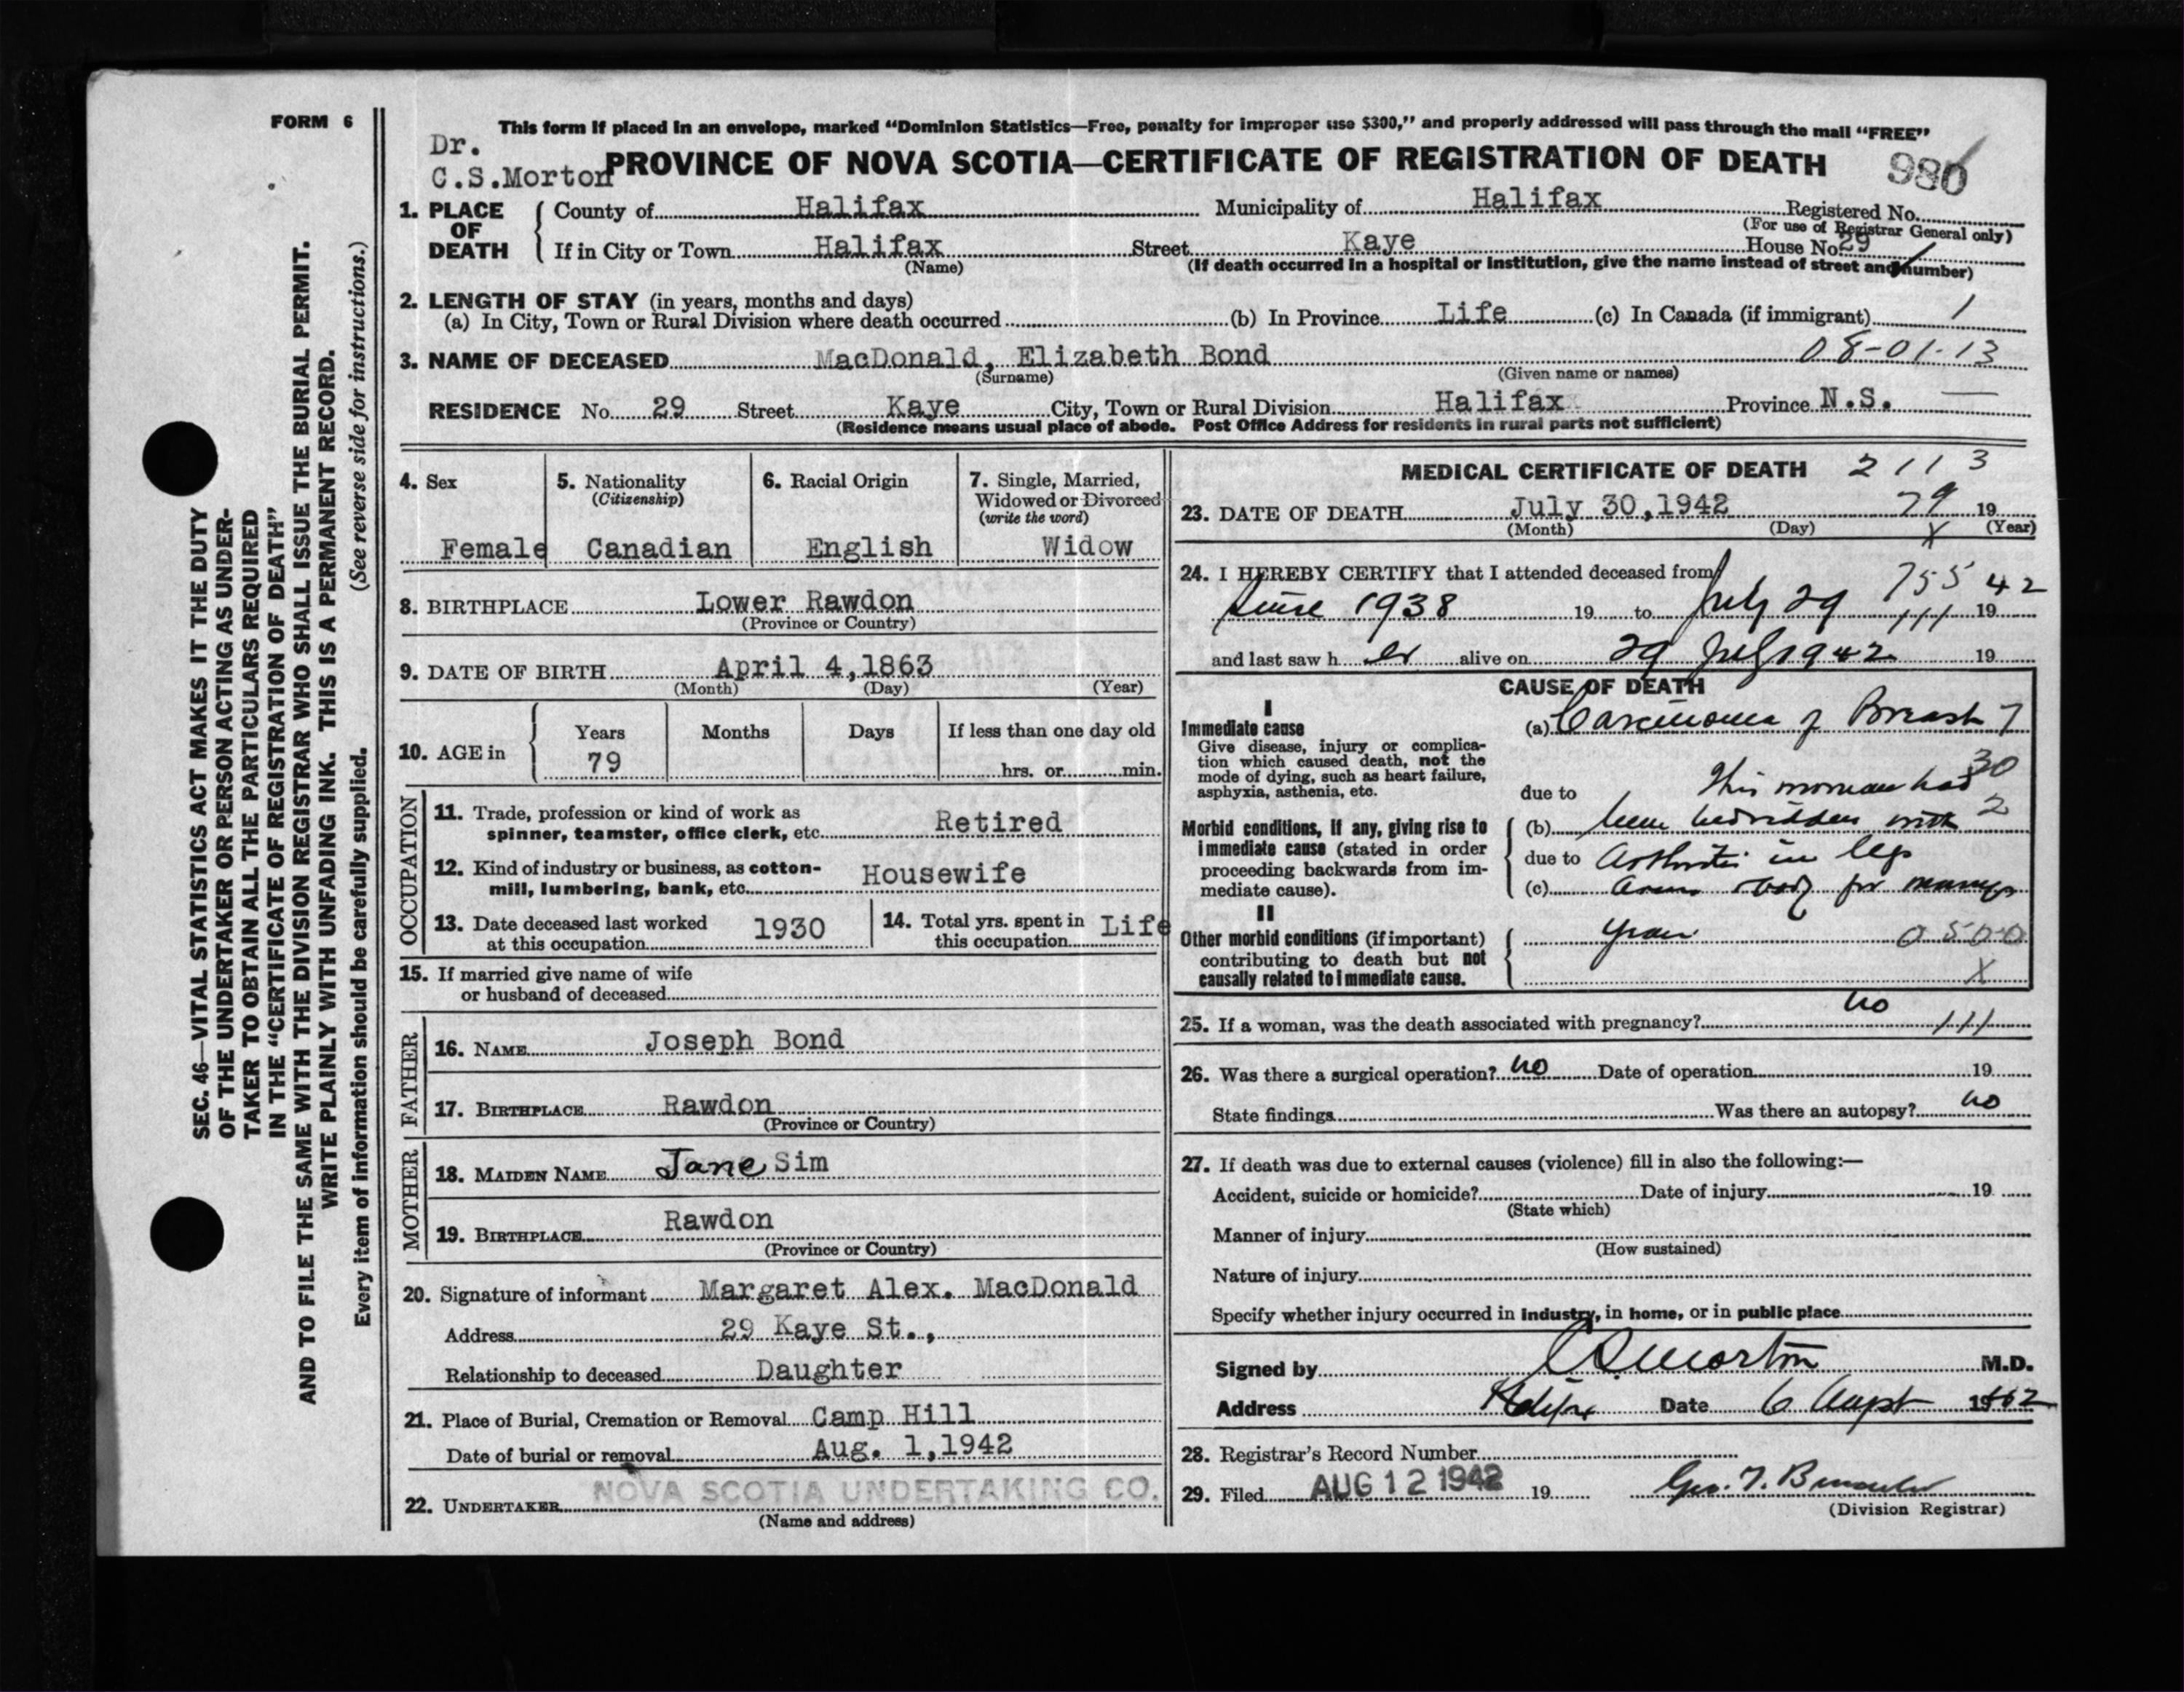 FORM 6
This form if placed in an envelope, marked “Dominion Statistics—Free, penalty for improper use $300,” and properly addressed will pass through the mail “FREE”
Dr.
C.S.Morton
PROVINCE OF NOVA SCOTIA—CERTIFICATE OF REGISTRATION OF DEATH
980
1. PLACE OF DEATH
County of Halifax Municipality of Halifax Registered No.
(For use of Registrar General only)
If in City or Town Halifax Street Kaye House No 29
(Name) (If death occurred in a hospital or institution, give the name instead of street and number)
2. LENGTH OF STAY (in years, months and days)
(a) In City, Town or Rural Division where death occurred (b) In Province Life (c) In Canada (if immigrant) 1
3. NAME OF DECEASED MacDonald, Elizabeth Bond 08-01-13
(Surname) (Given name or names)
RESIDENCE No. 29 Street Kaye City, Town or Rural Division Halifax Province N.S.
(Residence means usual place of abode. Post Office Address for residents in rural parts not sufficient)
4. Sex
Female
5. Nationality
(Citizenship)
Canadian
6. Racial Origin
English
7. Single, Married,
Widowed or Divorced
(write the word)
Widow
8. BIRTHPLACE Lower Rawdon
(Province or Country)
9. DATE OF BIRTH April 4,1863
(Month) (Day) (Year)
10. AGE in
Years Months Days If less than one day old
79 hrs. or min.
OCCUPATION
11. Trade, profession or kind of work as
spinner, teamster, office clerk, etc. Retired
12. Kind of industry or business, as cotton-
mill, lumbering, bank, etc. Housewife
13. Date deceased last worked
at this occupation 1930
14. Total yrs. spent in
this occupation Life
15. If married give name of wife
or husband of deceased
FATHER
16. NAME Joseph Bond
17. BIRTHPLACE Rawdon
(Province or Country)
MOTHER
18. MAIDEN NAME Jane Sim
19. BIRTHPLACE Rawdon
(Province or Country)
20. Signature of informant Margaret Alex. MacDonald
Address 29 Kaye St.,
Relationship to deceased Daughter
21. Place of Burial, Cremation or Removal Camp Hill
Date of burial or removal Aug. 1,1942
22. UNDERTAKER NOVA SCOTIA UNDERTAKING CO.
(Name and address)
MEDICAL CERTIFICATE OF DEATH 2113
23. DATE OF DEATH July 30,1942 79 19
(Month) (Day) X (Year)
24. I HEREBY CERTIFY that I attended deceased from 755
since 1938 19 to July 29 111 19 42
and last saw h er alive on 29 July 1942 19
CAUSE OF DEATH
I
Immediate cause
Give disease, injury or complica-
tion which caused death, not the
mode of dying, such as heart failure,
asphyxia, asthenia, etc.
(a) Carcinoma of Breast 7
30
due to This woman had
Morbid conditions, if any, giving rise to
immediate cause (stated in order
proceeding backwards from im-
mediate cause).
(b) been bedridden with 2
due to Arthritis in legs
(c) arms body for many
II
Other morbid conditions (if important)
contributing to death but not
causally related to immediate cause.
years 0500
X
25. If a woman, was the death associated with pregnancy? no 111
26. Was there a surgical operation? no Date of operation 19
State findings Was there an autopsy? no
27. If death was due to external causes (violence) fill in also the following:—
Accident, suicide or homicide? Date of injury 19
(State which)
Manner of injury
(How sustained)
Nature of injury
Specify whether injury occurred in industry, in home, or in public place
Signed by C.S. Morton M.D.
Address Halifax Date 6 August 1942
28. Registrar's Record Number
29. Filed AUG 12 1942 19 Geo. F.
(Division Registrar)
SEC. 46—VITAL STATISTICS ACT MAKES IT THE DUTY
OF THE UNDERTAKER OR PERSON ACTING AS UNDER-
TAKER TO OBTAIN ALL THE PARTICULARS REQUIRED
IN THE “CERTIFICATE OF REGISTRATION OF DEATH”
AND TO FILE THE SAME WITH THE DIVISION REGISTRAR WHO SHALL ISSUE THE BURIAL PERMIT.
WRITE PLAINLY WITH UNFADING INK. THIS IS A PERMANENT RECORD.
Every item of information should be carefully supplied. (See reverse side for instructions.)